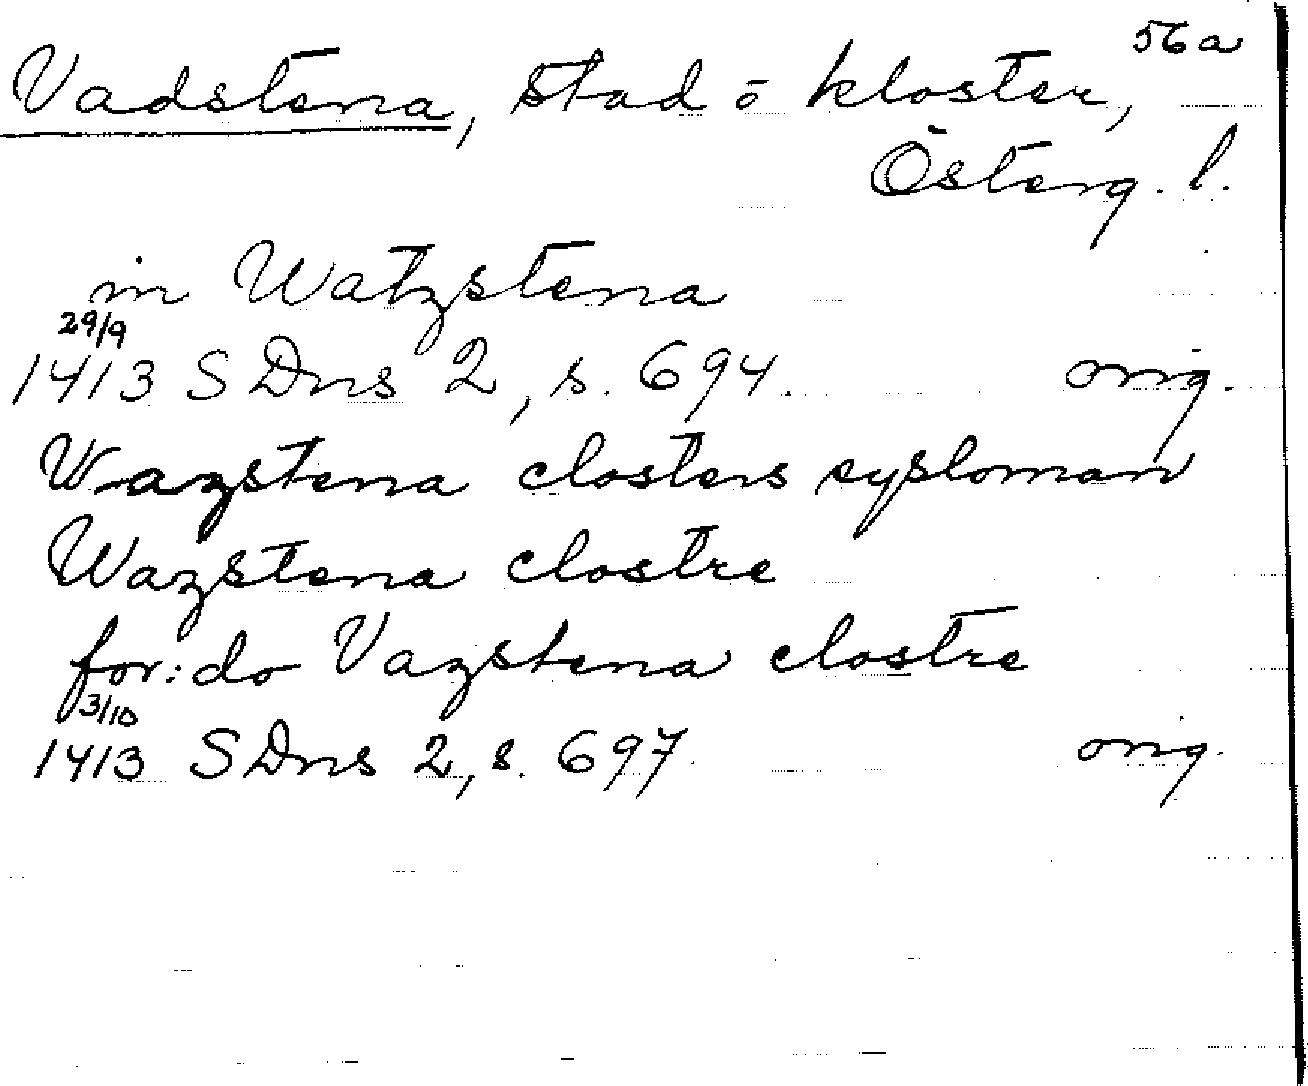 56a
Vadstena, stad o kloster,
Österg. l.
in Watzstena
29/9
1413 SDns 2, s. 694. orig.
Wazstena closters sysloman
Wazstena clostre
for:do Vazstena clostre
3/10
1413 SDns 2, s. 697. orig.